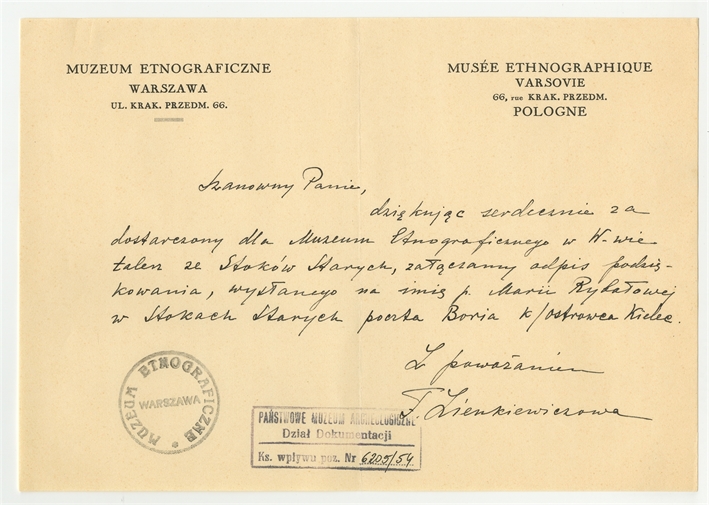 MUZEUM ETNOGRAFICZNE
WARSZAWA
UL. KRAK. PRZEDM. 66.
MUSÉE ETHNOGRAPHIQUE
VARSOVIE
66, rue KRAK. PRZEDM.
POLOGNE
Szanowny Panie,
dziękując serdecznie za
dostarczony dla Muzeum Etnograficznego w W-wie
talerz ze Stoków Starych, załączamy odpis podzię-
kowania, wysłanego na imię p. Marii Rydałowej
w Stokach Starych poczta Boria k/Ostrowca Kielec.
Z poważaniem
T. Zienkiewiczowa
MUZEUM ETNOGRAFICZNE *
WARSZAWA
PAŃSTWOWE MUZEUM ARCHEOLOGICZNE
Dział Dokumentacji
Ks. wpływu poz. Nr 6205/54